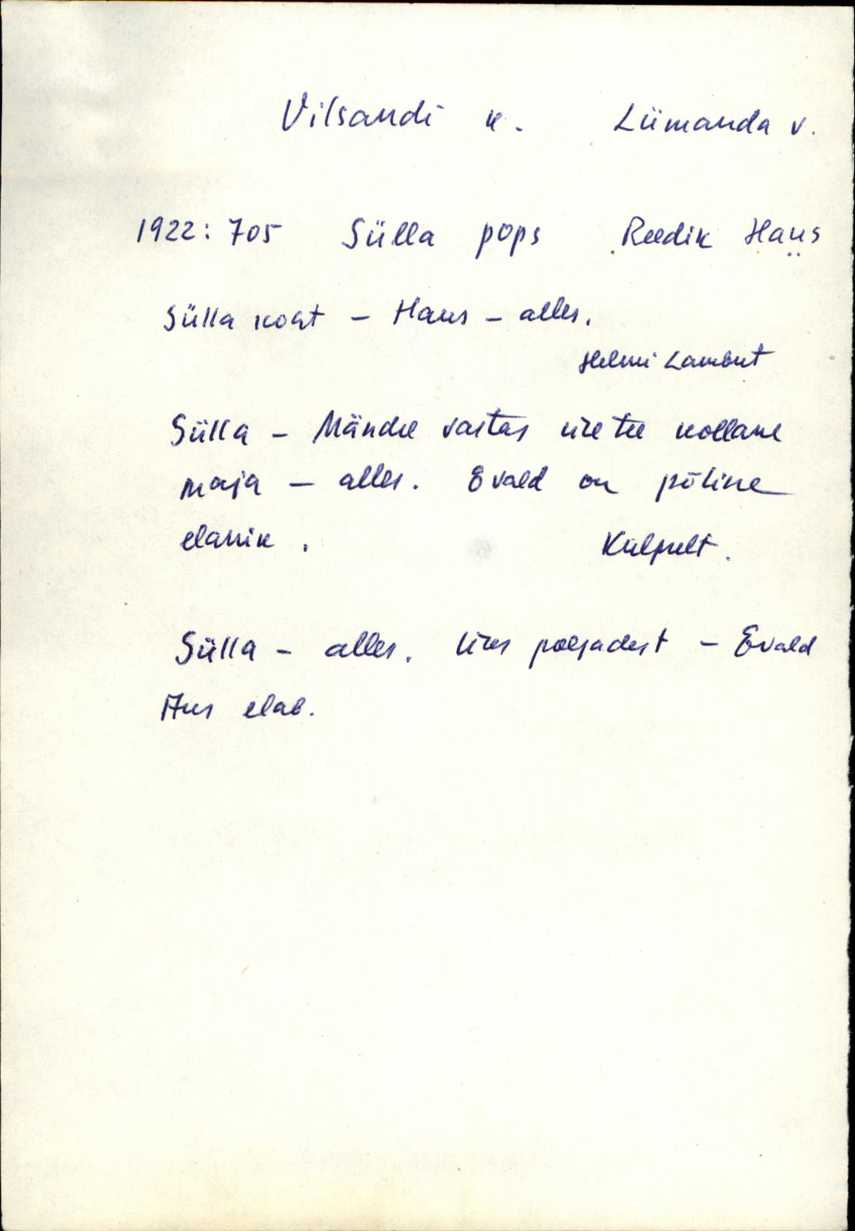 Vilsandi k. Lümanda v.
1922: 705 Sülla pops Reedik Haus
Sülla koht – Haus – alles.
Helmi Lambut
Sülla – Mändre vastas üle tee kollane
maja – alles. Evald on põline
elanik. Külpelt.
Sülla – alles. Üks poegadest – Evald
Aus elab.